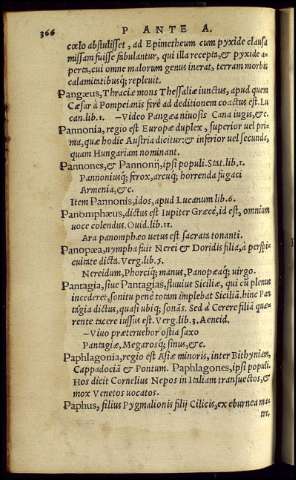 366
PANTE A.
cœlo abstulisset, ad Epimetheum cum pyxide clausa
missam fuisse fabulantur, qui illa recepta, & pyxide a-
perta, cui omne malorum genus inerat, terram morbis
calamitatibusq; repleuit.
Pangæus, Thraciæ mons Thessaliæ iunctus, apud quem
Cæsar à Pompeianis ferè ad deditionem coactus est. Lu
can. lib. 1. —Video Pangæa niuosis Cana iugis, &c.
Pannonia, regio est Europæ duplex, superior uel pri
ma, quæ hodie Austria dicitur: & inferior uel secunda,
quam Hungariam nominant.
Pannones, & Pannonij, ipsi populi. Stat. lib. 1.
Pannoniusq; ferox, arcuq; horrenda fugaci
Armenia, &c.
Item Pannonis, idos, apud Lucanum lib. 6.
Panomphæus, dictus est Iupiter Græcè, id est, omniam
uoce colendus. Ouid. lib. 11.
Ara panomphæo uetus est sacrata tonanti.
Panopæa, nympha fuit Nerei & Doridis filia, à perspi
cuitate dicta. Verg. lib. 5.
Nereidum, Phorciq; manus, Panopæaq; uirgo.
Pantagia, siue Pantagias, fluuius Siciliæ, qui cū plenus
incederet, sonitu penè totam implebat Siciliā. hinc Pan
tagia dictus, quasi ubiq; sonās. Sed à Cerere filiā quæ-
rente tacere iussus est. Verg. lib. 3. Aeneid.
—Viuo præteruehor ostia saxo
Pantagiæ, Megarosq; sinus, &c.
Paphlagonia, regio est Asiæ minoris, inter Bithyniam,
Cappadociā & Pontum. Paphlagones, ipsi populi.
Hos dicit Cornelius Nepos in Italiam transuectos, &
mox Venetos uocatos.
Paphus, filius Pygmalionis filij Cilicis, ex eburnea ma
tre,